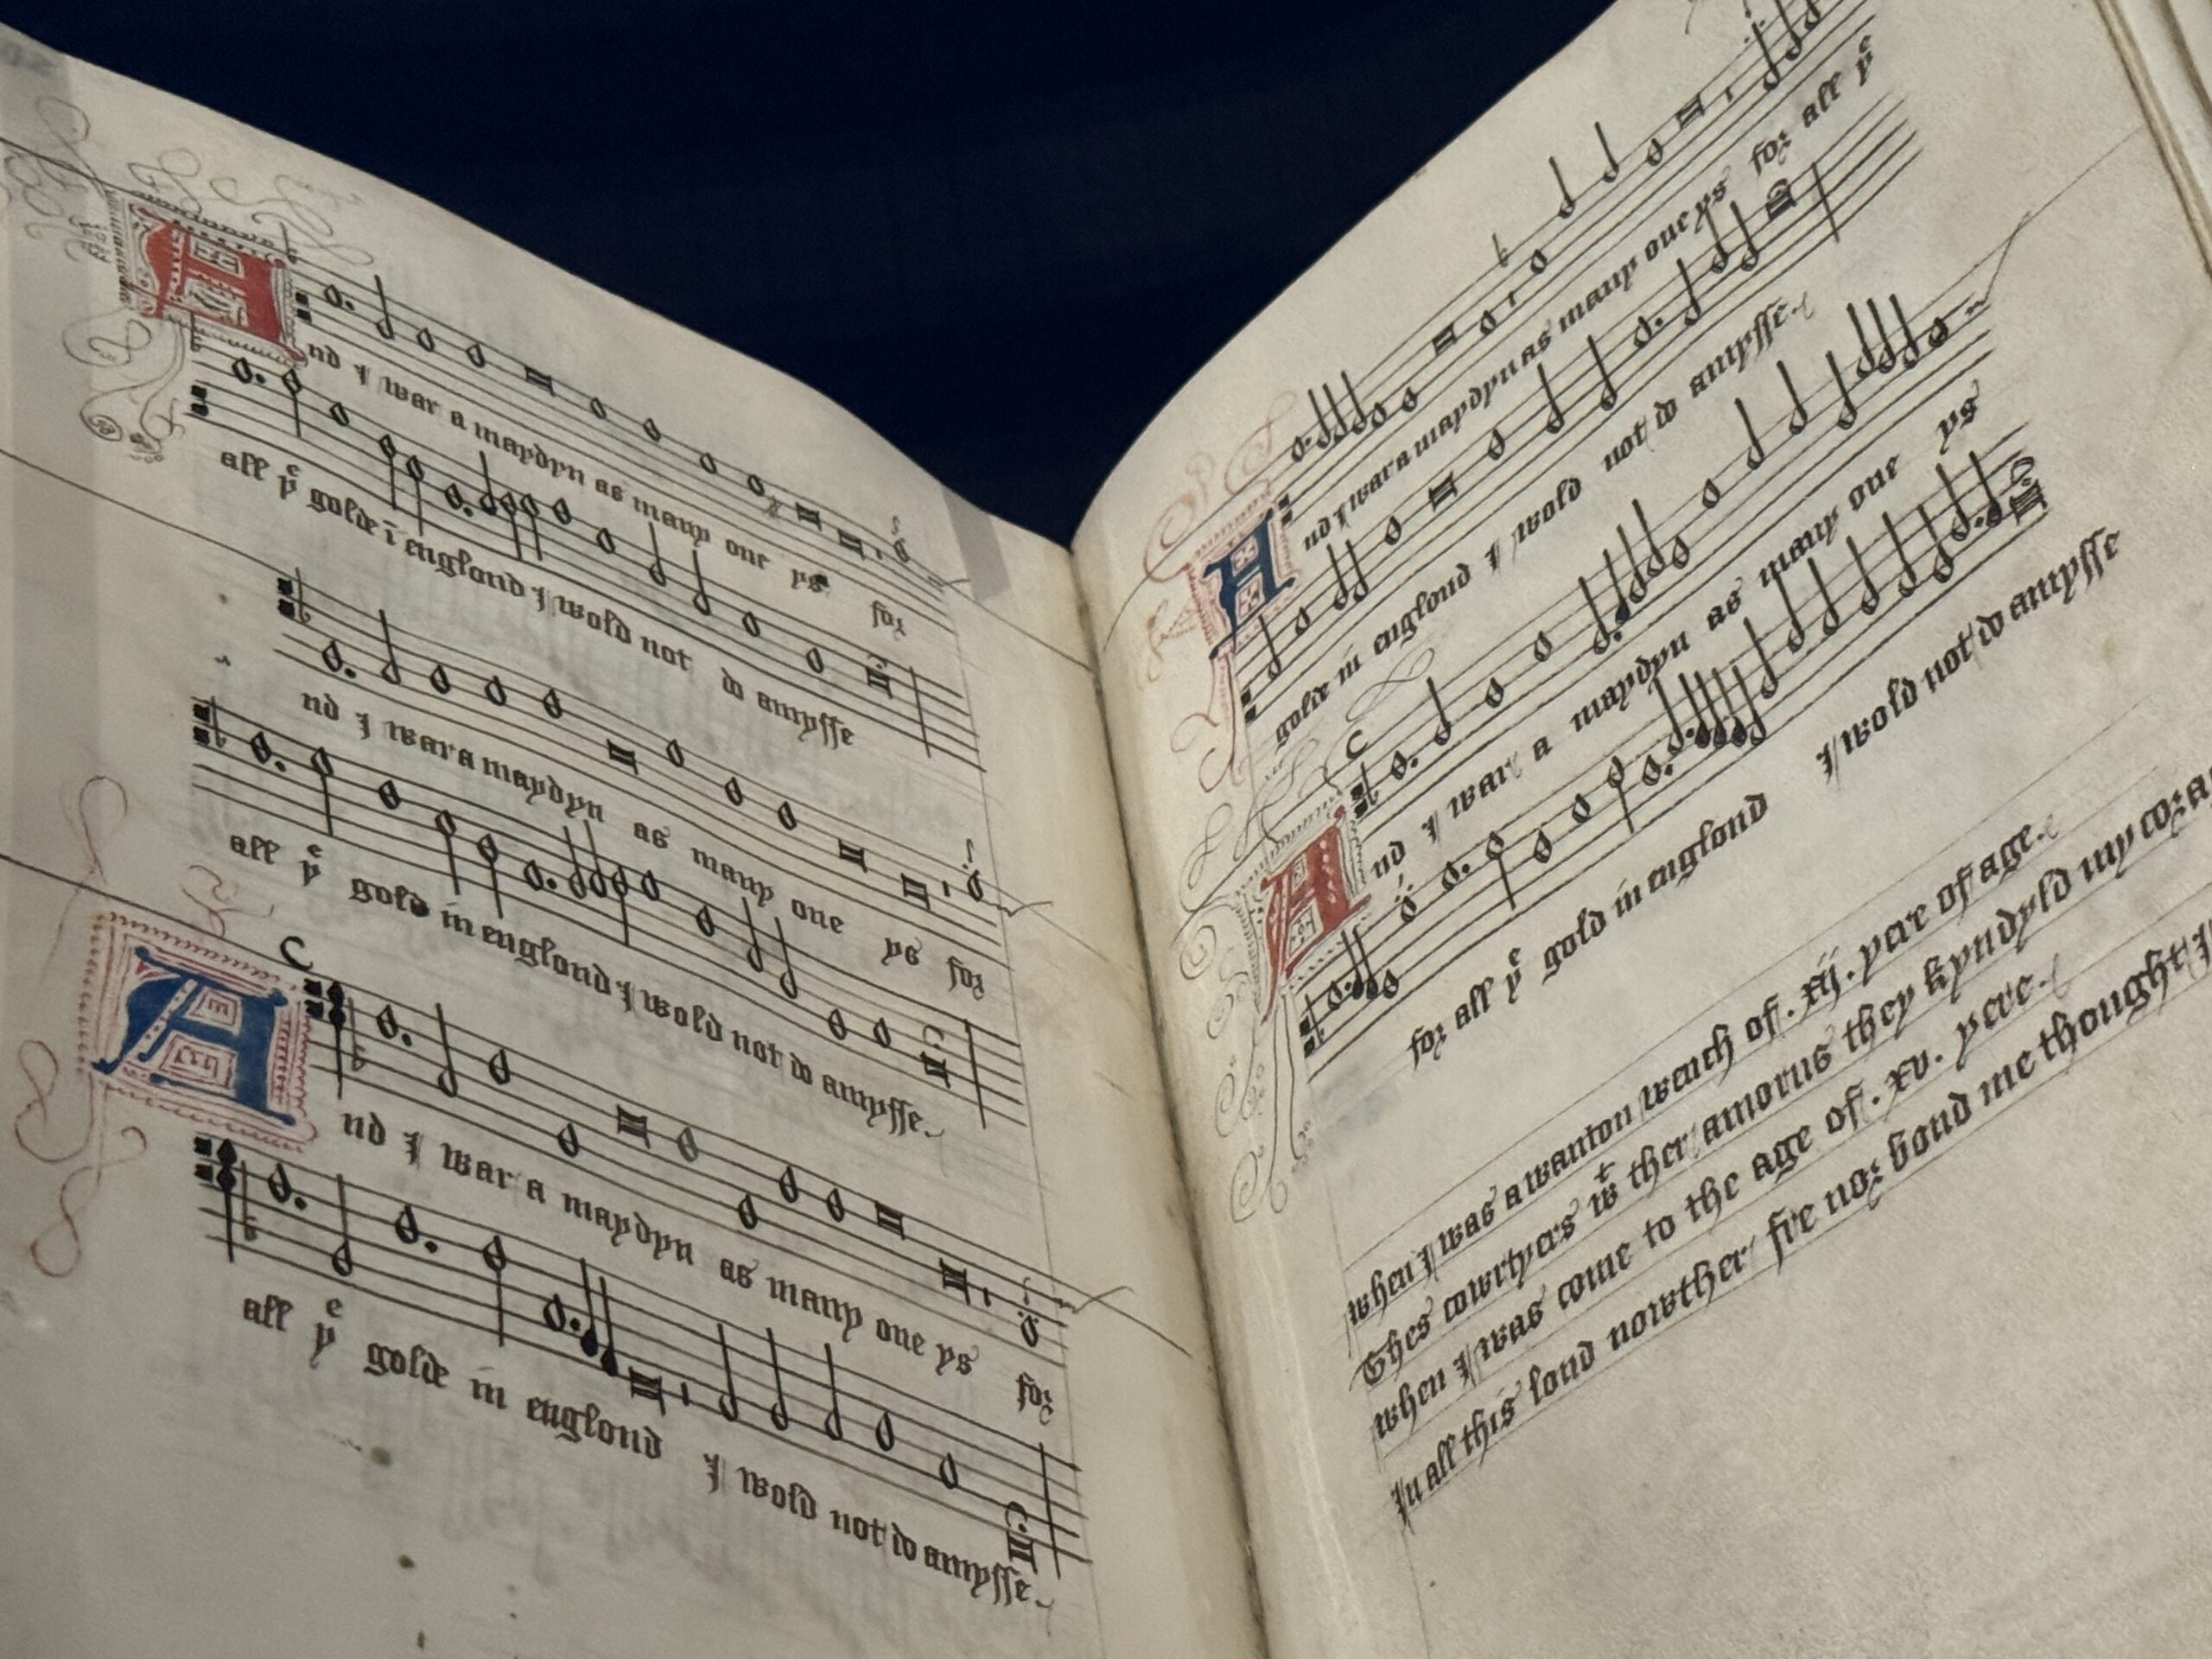 And I war a maydyn as many one ys for
all yͤ golde ī englond I wold not do amysse
nd I war a maydyn as many one ys for
all yͤ gold in englond I wold not do amysse.
C
And I war a maydyn as many one ys for
all yͤ golde in englond I wold not do amysse.
And I war a maydyn as many one ys for all yͤ
golde in englond I wold not do amysse.
C
And I war a maydyn as many one ys
for all yͤ gold in englond I wold not do amysse
when I was a wanton wench of. xij. yere of age.
Thes cowrtyers wͭ ther amorus they kyndyld my
when I was come to the age of. xv. yere.
In all this lond nowther fre nor bond me thought